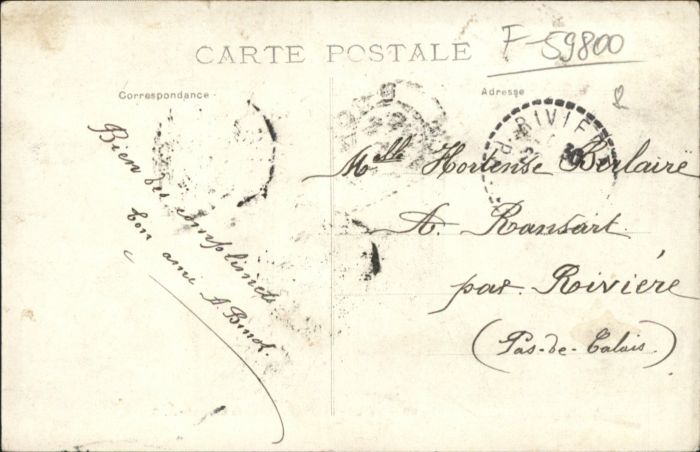 CARTE POSTALE
F-59800
Correspondance
Adresse
Bien des compliments
ton ami A. Binot.
RIVIE
Mlle Hortense Berlaire
A. Ransart.
par Rivière
(Pas-de-Calais)